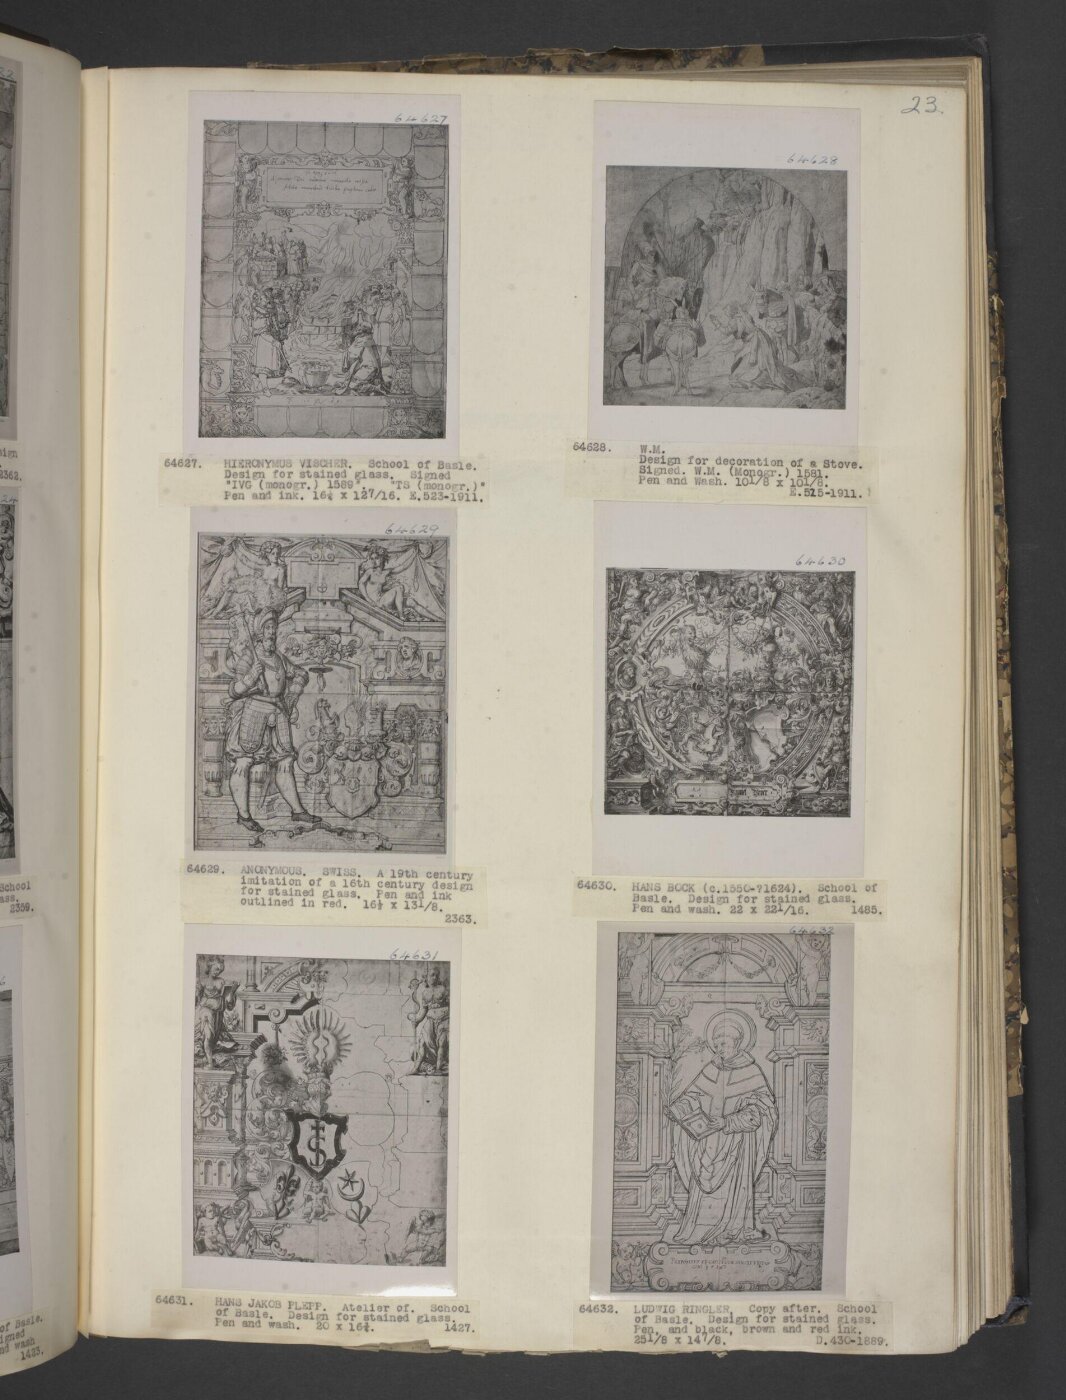 23.
64627
64627. HIERONYMUS VISCHER. School of Basle.
Design for stained glass. Signed
"IVG (monogr.) 1589". "TS (monogr.)"
Pen and ink. 16¼ x 127/16. E.523-1911.
64628
64628. W.M.
Design for decoration of a Stove.
Signed. W.M. (Monogr.) 1581.
Pen and Wash. 101/8 x 101/8.
E.515-1911.
64629
64629. ANONYMOUS. SWISS. A 19th century
imitation of a 16th century design
for stained glass. Pen and ink
outlined in red. 16½ x 131/8.
2363.
64630
64630. HANS BOCK (c.1550-?1624). School of
Basle. Design for stained glass.
Pen and wash. 22 x 221/16. 1485.
64631
64631. HANS JAKOB PLEPP. Atelier of. School
of Basle. Design for stained glass.
Pen and wash. 20 x 16¾. 1427.
64632
64632. LUDWIG RINGLER, Copy after. School
of Basle. Design for stained glass.
Pen, and black, brown and red ink.
251/8 x 147/8. D.430-1889.
2362.
School
2359.
of Basle.
wash
1423.